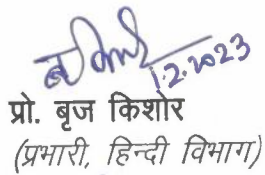 1.2.2023
प्रो. बृज किशोर
(प्रभारी, हिन्दी विभाग)